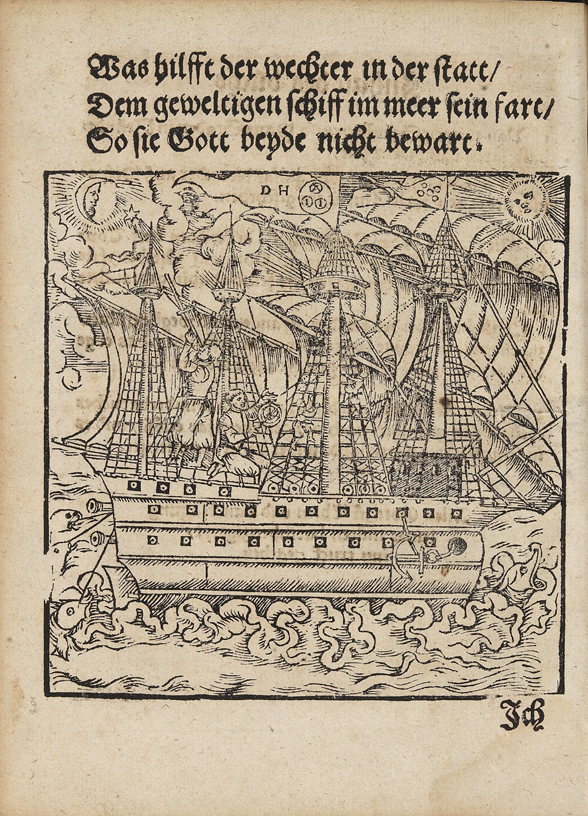 Was hilfft der wechter in der statt/
Dem geweltigen schiff im meer sein fart/
So sie Gott beyde nicht bewart.
D H
Ich